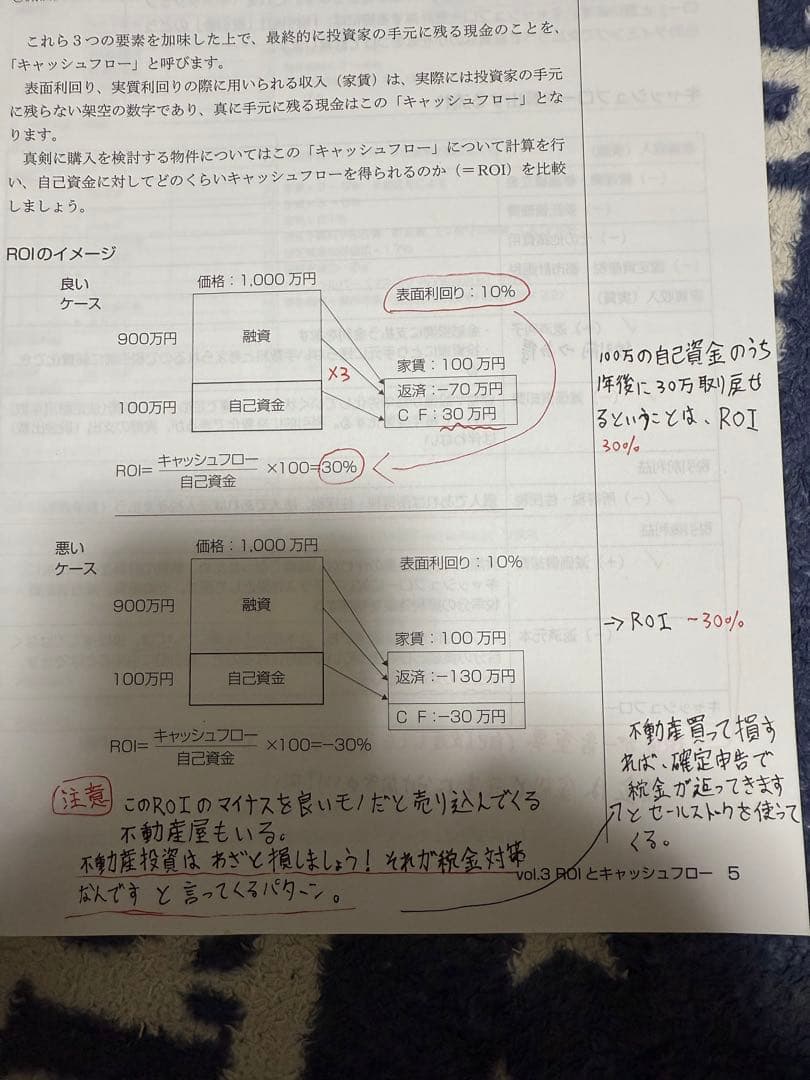 これら3つの要素を加味した上で、最終的に投資家の手元に残る現金のことを、
「キャッシュフロー」と呼びます。
表面利回り、実質利回りの際に用いられる収入（家賃）は、実際には投資家の手元
に残らない架空の数字であり、真に手元に残る現金はこの「キャッシュフロー」とな
ります。
真剣に購入を検討する物件についてはこの「キャッシュフロー」について計算を行
い、自己資金に対してどのくらいキャッシュフローを得られるのか（＝ROI）を比較
しましょう。
ROIのイメージ
良い
ケース
価格：1,000万円
表面利回り：10%
900万円
融資
×3
家賃：100万円
返済：−70万円
100万円
自己資金
CF：30万円
ROI=キャッシュフロー
自己資金
×100=30%
100万の自己資金のうち
1年後に30万取り戻せ
るということは、ROI
30%
悪い
ケース
価格：1,000万円
表面利回り：10%
900万円
融資
家賃：100万円
返済：−130万円
100万円
自己資金
CF：−30万円
ROI=キャッシュフロー
自己資金
×100=−30%
→ROI −30%
注意 このROIのマイナスを良いモノだと売り込んでくる
不動産屋もいる。
不動産投資はわざと損しましょう！それが税金対策
なんですと言ってくるパターン。
不動産買って損す
れば、確定申告で
税金が返ってきます
とセールストークを使って
くる。
vol.3 ROIとキャッシュフロー 5